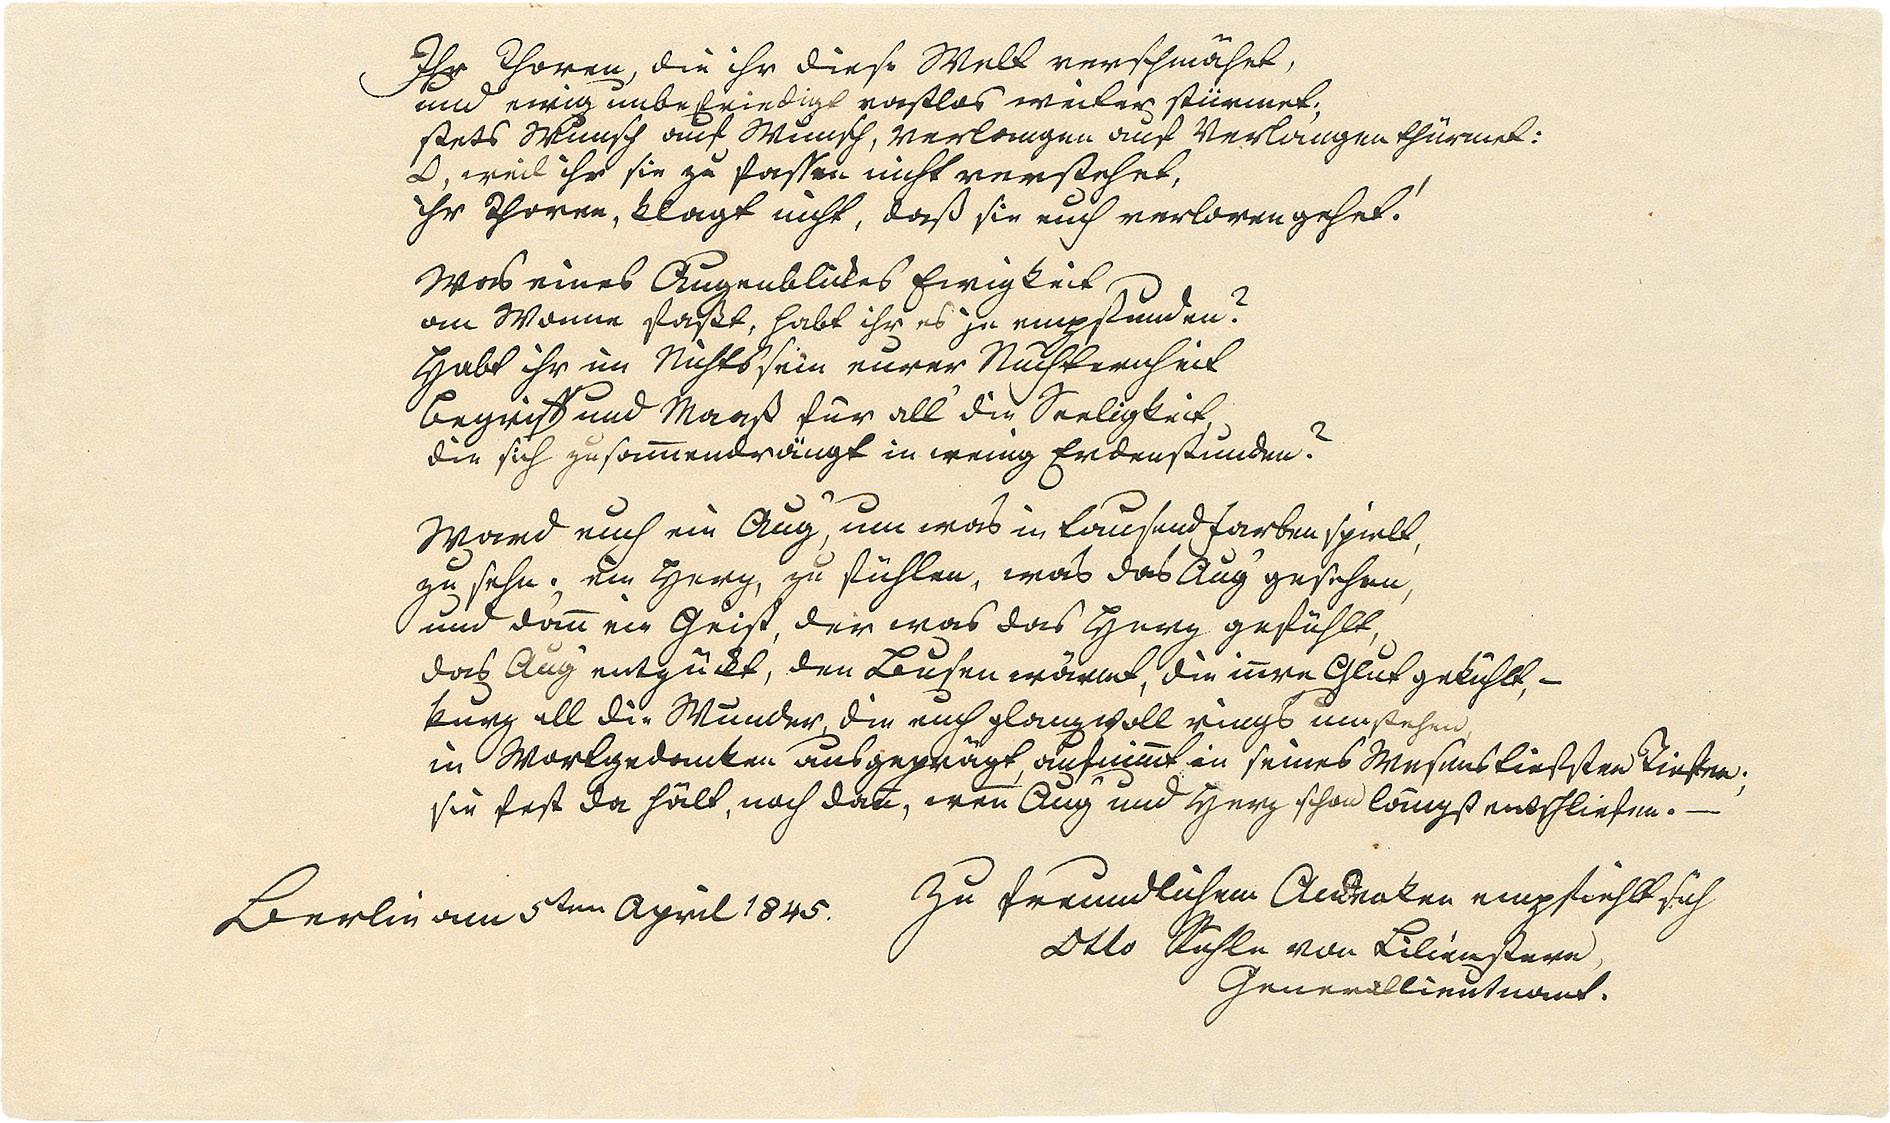 Ihr Thoren, die ihr diese Welt verschmähet,
und ewig unbefriedigt rastlos weiter stürmet;
stets Wunsch auf Wunsch, Verlangen auf Verlangen thürmet:
O, weil ihr sie zu fassen nicht verstehet,
ihr Thoren, klagt nicht, daß sie euch verloren gehet!
Was eines Augenblickes Ewigkeit
an Wonne faßt, habt ihr es je empfunden?
Habt ihr im Nichtssein eurer Nüchternheit
Begriff und Maaß für all' die Seeligkeit,
die sich zusam̄endrängt in wenig Erdenstunden?
Ward euch ein Aug', um was in tausend Farben spielt,
zu sehn; ein Herz, zu fühlen, was das Aug' gesehen,
und dan̄ ein Geist, der was das Herz gefühlt,
das Aug' entzückt, den Busen wärmt, die in̄re Glut gekühlt, –
kurz all die Wunder, die euch glanzvoll rings umstehen,
in Wortgedanken ausgeprägt, aufnim̄t in seines Wesens tiefsten Tiefen;
sie fest da hält, noch dan̄, wen̄ Aug' und Herz schon längst entschliefen. —
Berlin am 5ten April 1845. Zu freundlichem Andenken empfiehlt sich
Otto Rühle von Lilienstern,
Generallieutnant.